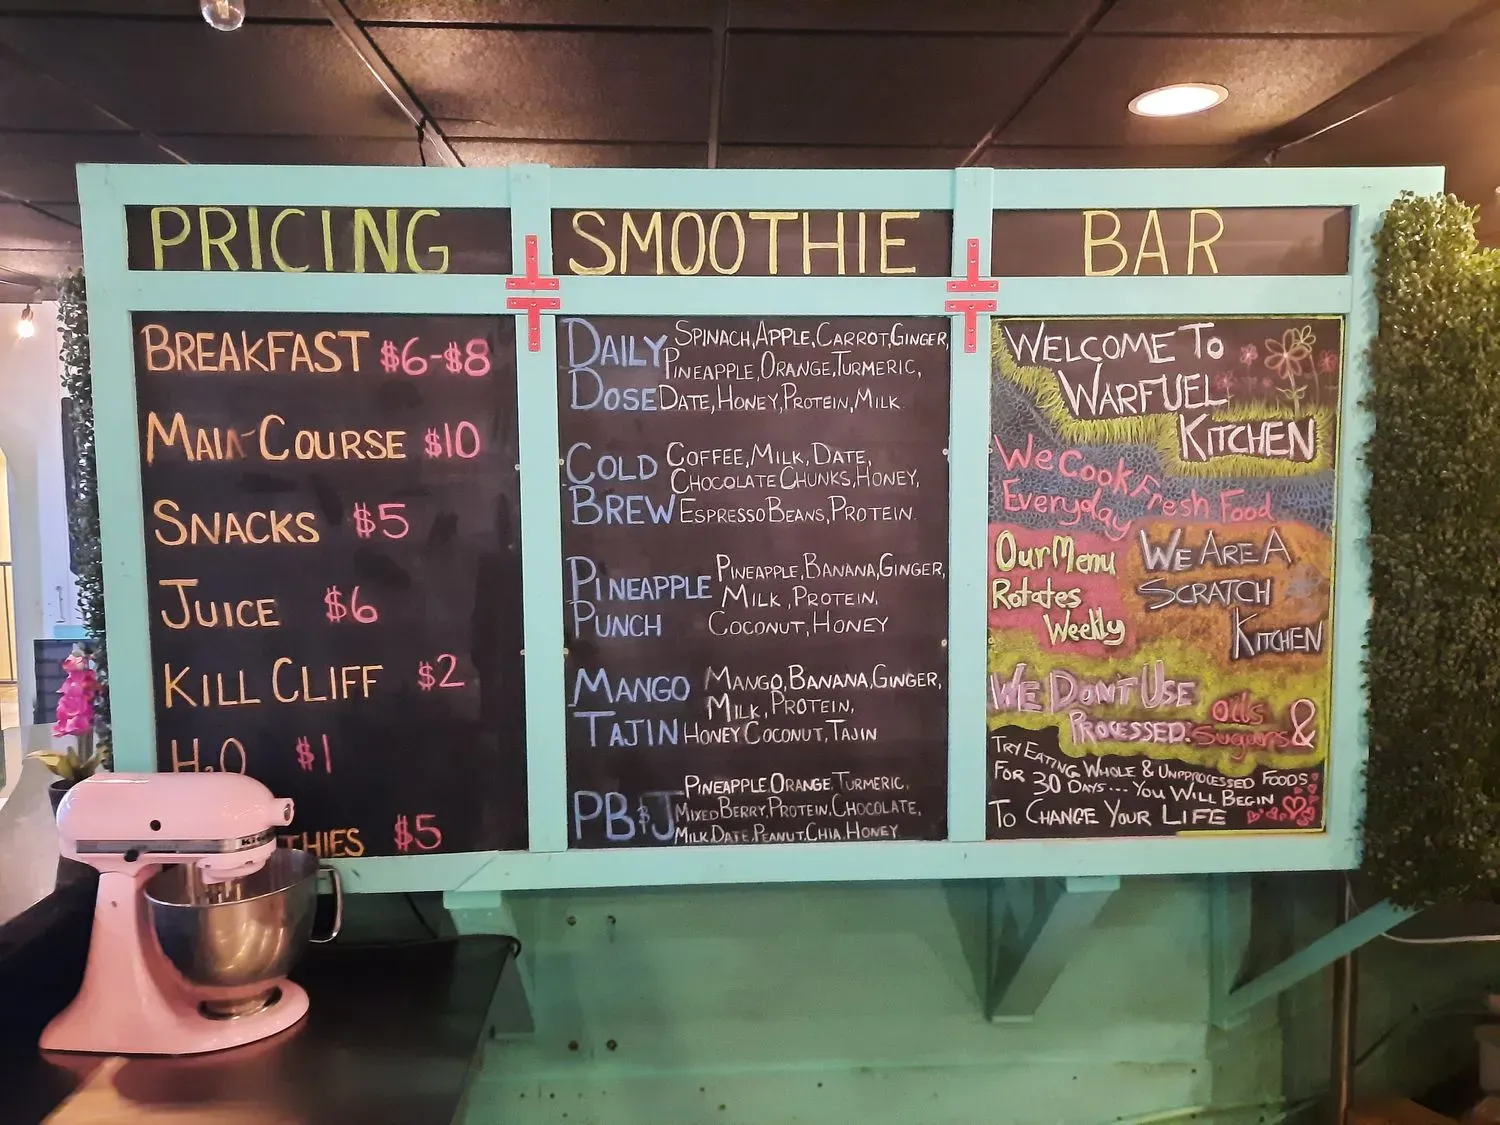 PRICING
SMOOTHIE
BAR
BREAKFAST $6-$8
MAIN COURSE $10
SNACKS $5
JUICE $6
KILL CLIFF $2
H2O $1
THIES $5
DAILY DOSE
SPINACH, APPLE, CARROT, GINGER,
PINEAPPLE, ORANGE, TURMERIC,
DATE, HONEY, PROTEIN, MILK
COLD BREW
COFFEE, MILK, DATE,
CHOCOLATE CHUNKS, HONEY,
ESPRESSO BEANS, PROTEIN
PINEAPPLE PUNCH
PINEAPPLE, BANANA, GINGER,
MILK, PROTEIN,
COCONUT, HONEY
MANGO TAJIN
MANGO, BANANA, GINGER,
MILK, PROTEIN,
HONEY COCONUT, TAJIN
PB&J
PINEAPPLE, ORANGE, TURMERIC,
MIXED BERRY, PROTEIN, CHOCOLATE,
MILK, DATE, PEANUT, CHIA, HONEY
WELCOME TO
WARFUEL
KITCHEN
We Cook Fresh Food
Everyday
Our Menu
Rotates
Weekly
WE ARE A
SCRATCH
KITCHEN
WE DON'T USE
PROCESSED: oils &
Sugars
TRY EATING WHOLE & UNPROCESSED FOODS
FOR 30 DAYS... YOU WILL BEGIN
TO CHANGE YOUR LIFE